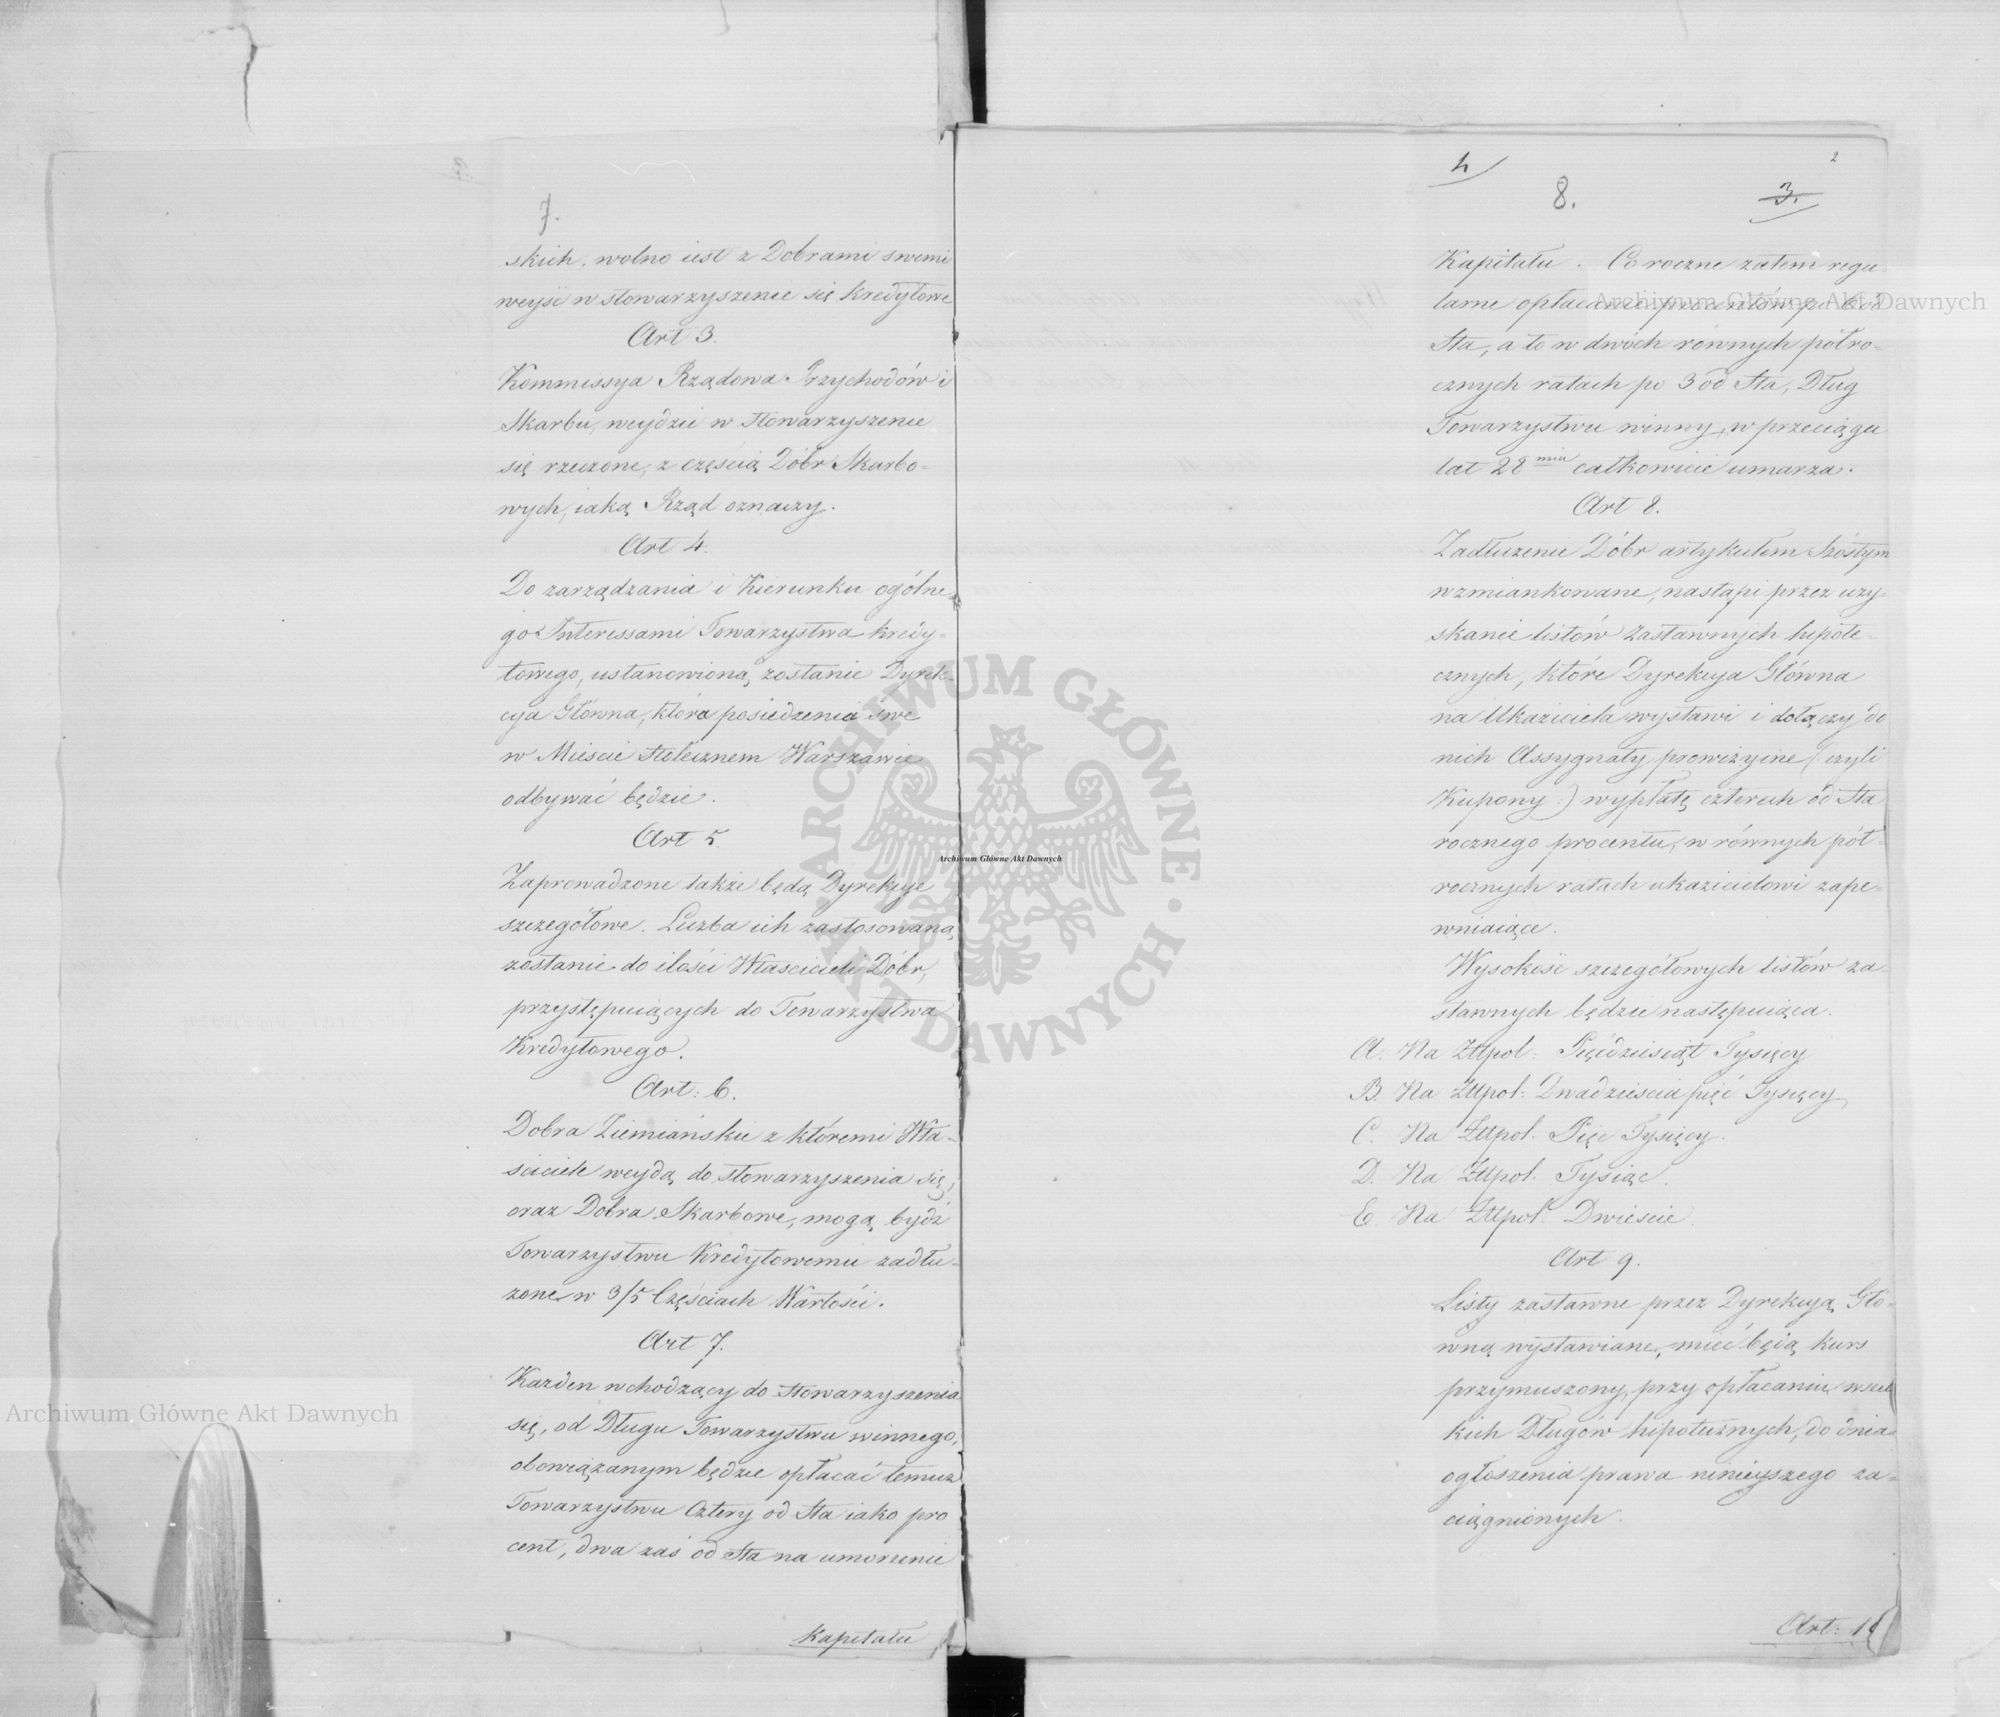 7.
skich, wolno iest z Dobrami swemi
weyść w stowarzyszenie się Kredytowe
Art 3.
Kommissya Rządowa Przychodów i
Skarbu, weydzie w Stowarzyszenie
się rzeczone, z częścią Dóbr Skarbo-
wych, iaką Rząd oznaczy.
Art 4.
Do zarządzania i Kierunku ogólne-
go Interessami Towarzystwa Kredy-
towego, ustanowioną zostanie Dyrek-
cya Główna, która posiedzenia swe
w Mieście Stołecznem Warszawie
odbywać będzie.
Art 5.
Zaprowadzone także będą Dyrekcye
szczegółowe. Liczba ich zastosowaną
zostanie do ilości Właścicieli Dóbr,
przystępuiących do Towarzystwa
Kredytowego.
Art: 6.
Dobra Ziemiańskie z któremi Wła-
ściciele weydą do stowarzyszenia się,
oraz Dobra Skarbowe, mogą bydź
Towarzystwu Kredytowemu zadłu-
żone w 3/5 Częściach Wartości.
Art 7.
Każden wchodzący do Stowarzyszenia
się, od Długu Towarzystwu winnego,
obowiązanym będzie opłacać temuż
Towarzystwu Cztery od Sta iako pro
cent, dwa zaś od Sta na umorzenie
Kapitału
4
8.
3.
2
Kapitału. Coroczne zatem regu-
larne opłacanie procentów po 6 od
Sta, a to w dwóch równych półro-
cznych ratach po 3 od Sta, Dług
Towarzystwu winny, w przeciągu
lat 28 miu całkowicie umarza.
Art 8.
Zadłużenie Dóbr artykułem Szóstym
wzmiankowane, nastąpi przez uzy-
skanie listów Zastawnych hipote-
cznych, które Dyrekcya Główna
na Ukaziciela wystawi i dołączy do
nich Assygnaty prowizyine (czyli
Kupony:) wypłatę czterech od Sta
rocznego procentu, w równych pół-
rocznych ratach ukazicielowi zape-
wniaiące.
Wysokość szczegółowych listów za-
stawnych będzie następuiąca.
A. Na Złłpol: Pięćdziesiąt Tysięcy
B. Na Złłpol: Dwadzieścia pięć Tysięcy
C. Na Złłpol. Pięć Tysięcy.
D. Na Złłpol. Tysiąc.
E. Na Złłpol. Dwieście.
Art 9.
Listy zastawne przez Dyrekcyą Głó-
wną wystawiane, mieć będą kurs
przymuszony, przy opłacaniu wszel
kich Długów hipotecznych, do dnia
ogłoszenia prawa ninieyszego za-
ciągnionych.
Archiwum Główne Akt Dawnych
Archiwum Główne Akt Dawnych
Archiwum Główne Akt Dawnych
ARCHIWUM GŁÓWNE AKT DAWNYCH